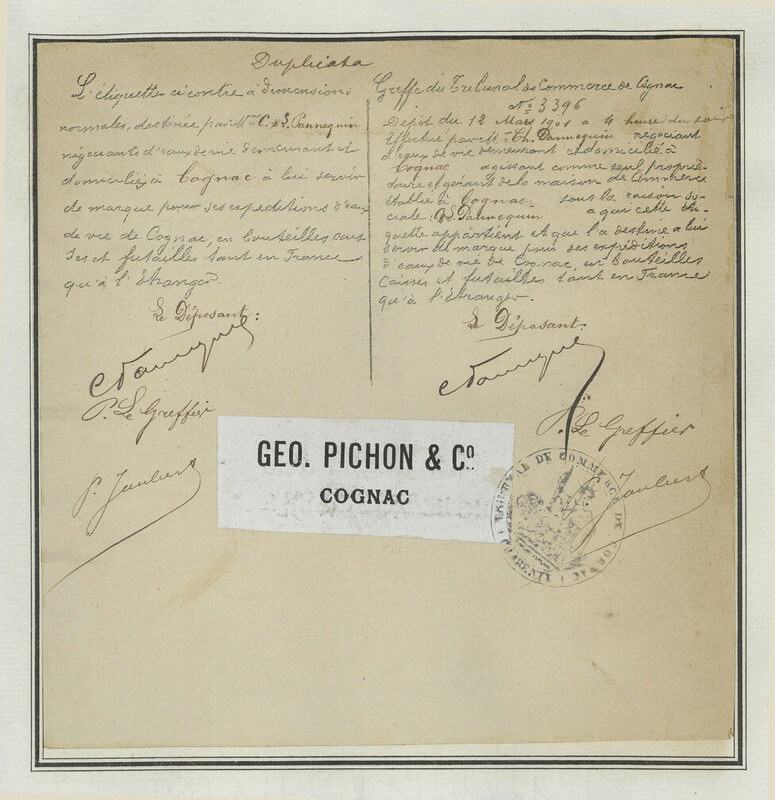 Duplicata
L'étiquette ci contre à dimensions
normales, destinée par Mr C. & L. Pannequin
négociants d'eaux de vie demeurant et
domicilié à Cognac à lui servir
de marque pour ses expéditions d'eaux
de vie de Cognac, en bouteilles cais
ses et futailles tant en France
qu'à l'Etranger.
Le Déposant:
P. Le Greffier
P. Joubert
Greffe du Tribunal de Commerce de Cognac
No 3396
Dépôt du 12 Mars 1901 à 4 heure du soir
Effectué par Mr Th. Pannequin négociant
d'eaux de vie demeurant et domicilié à
Cognac agissant comme seul proprié-
taire et gérant de la maison de Commerce
établie à Cognac sous la raison so-
ciale: Pannequin a qui cette éti-
quette appartient et que l'a destiné a lui
servir de marque pour ses expéditions
d'eaux de vie de Cognac, en bouteilles
caisses et futailles tant en France
qu'à l'étranger.
Le Déposant.
P. Le Greffier
Joubert
GEO. PICHON & Co.
COGNAC
TRIBUNAL DE COMMERCE DE COGNAC